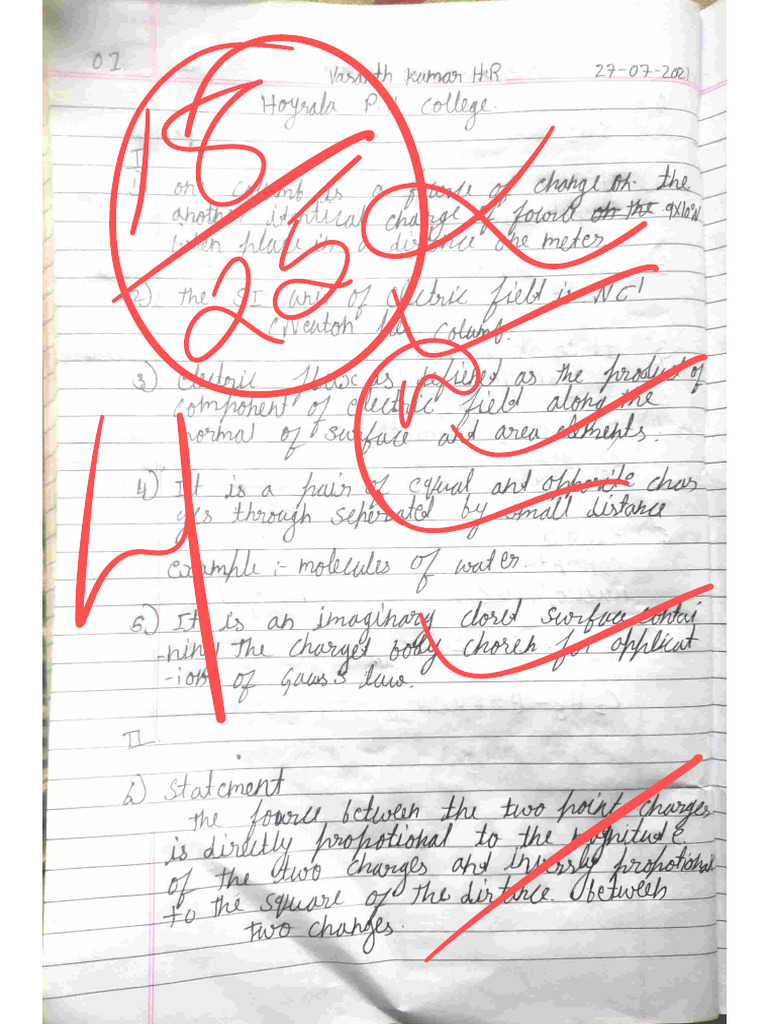 01
Vasanth Kumar H.R 27-07-2021
Hoysala P college.
18/25
I
1) one columb is a fource of change on the
another identical charge of fource 9x10⁹N
when place in a distance one meter
2) the SI unit of electric field is NC⁻¹
(Neuton Per columb.
3) Electric flux is defined as the product of
component of electric field along the
normal of surface and area elements.
4) It is a pair of equal and opposite char
ges through seperated by small distance
example :- molecules of water.
4
5) It is an imaginary closed surface contai
-ning the charged body chosen for applicat
-ion of Gauss law.
II
6) Statement
The fource between the two point charges
is directly propotional to the magnitude
of the two charges and inversly propotional
to the square of the distance between
two changes.